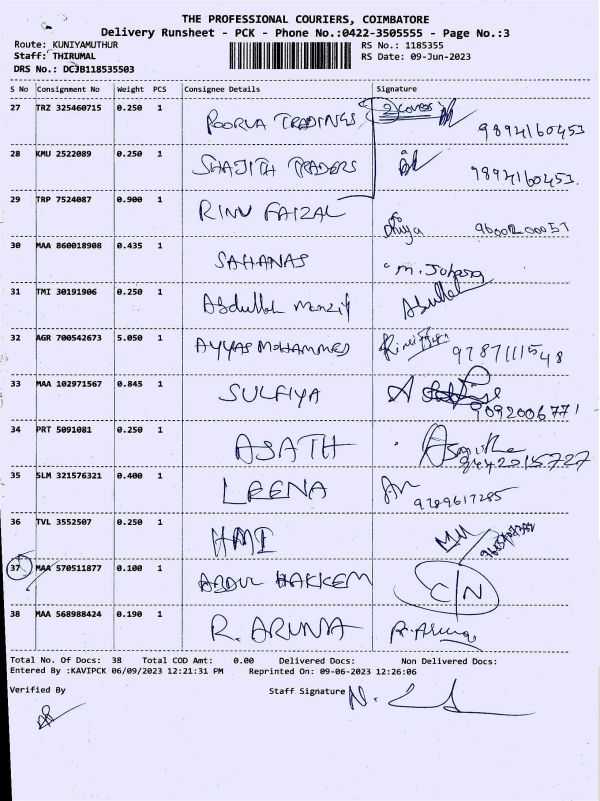 THE PROFESSIONAL COURIERS, COIMBATORE
Delivery Runsheet - PCK - Phone No.:0422-3505555 - Page No.:3
Route: KUNIYAMUTHUR RS No.: 1185355
Staff: THIRUMAL RS Date: 09-Jun-2023
DRS No.: DC3B118535503
S No Consignment No Weight PCS Consignee Details Signature
27 TRZ 325460715 0.250 1 POORVA TRADINGS 2 Covers
9894160453
28 KMU 2522089 0.250 1 SHAJITH TRADERS 9894160453.
29 TRP 7524087 0.900 1 RINU FAIZAL
30 MAA 860018908 0.435 1 SAHANAS
31 TMI 30191906 0.250 1 Abdullah Abdullah
32 AGR 700542673 5.050 1 AYYAS MOHAMMED 9787111548
33 MAA 102971567 0.845 1 SULFIYA
9092006771
34 PRT 5091081 0.250 1 ASATH
35 SLM 321576321 0.400 1 LEENA
9789617285
36 TVL 3552507 0.250 1 HMI
37 MAA 570511877 0.100 1 ABDUL HAKKEM C/N
38 MAA 568988424 0.190 1 R. ARUNA R. Aruna
Total No. Of Docs: 38 Total COD Amt: 0.00 Delivered Docs: Non Delivered Docs:
Entered By :KAVIPCK 06/09/2023 12:21:31 PM Reprinted On: 09-06-2023 12:26:06
Verified By Staff Signature